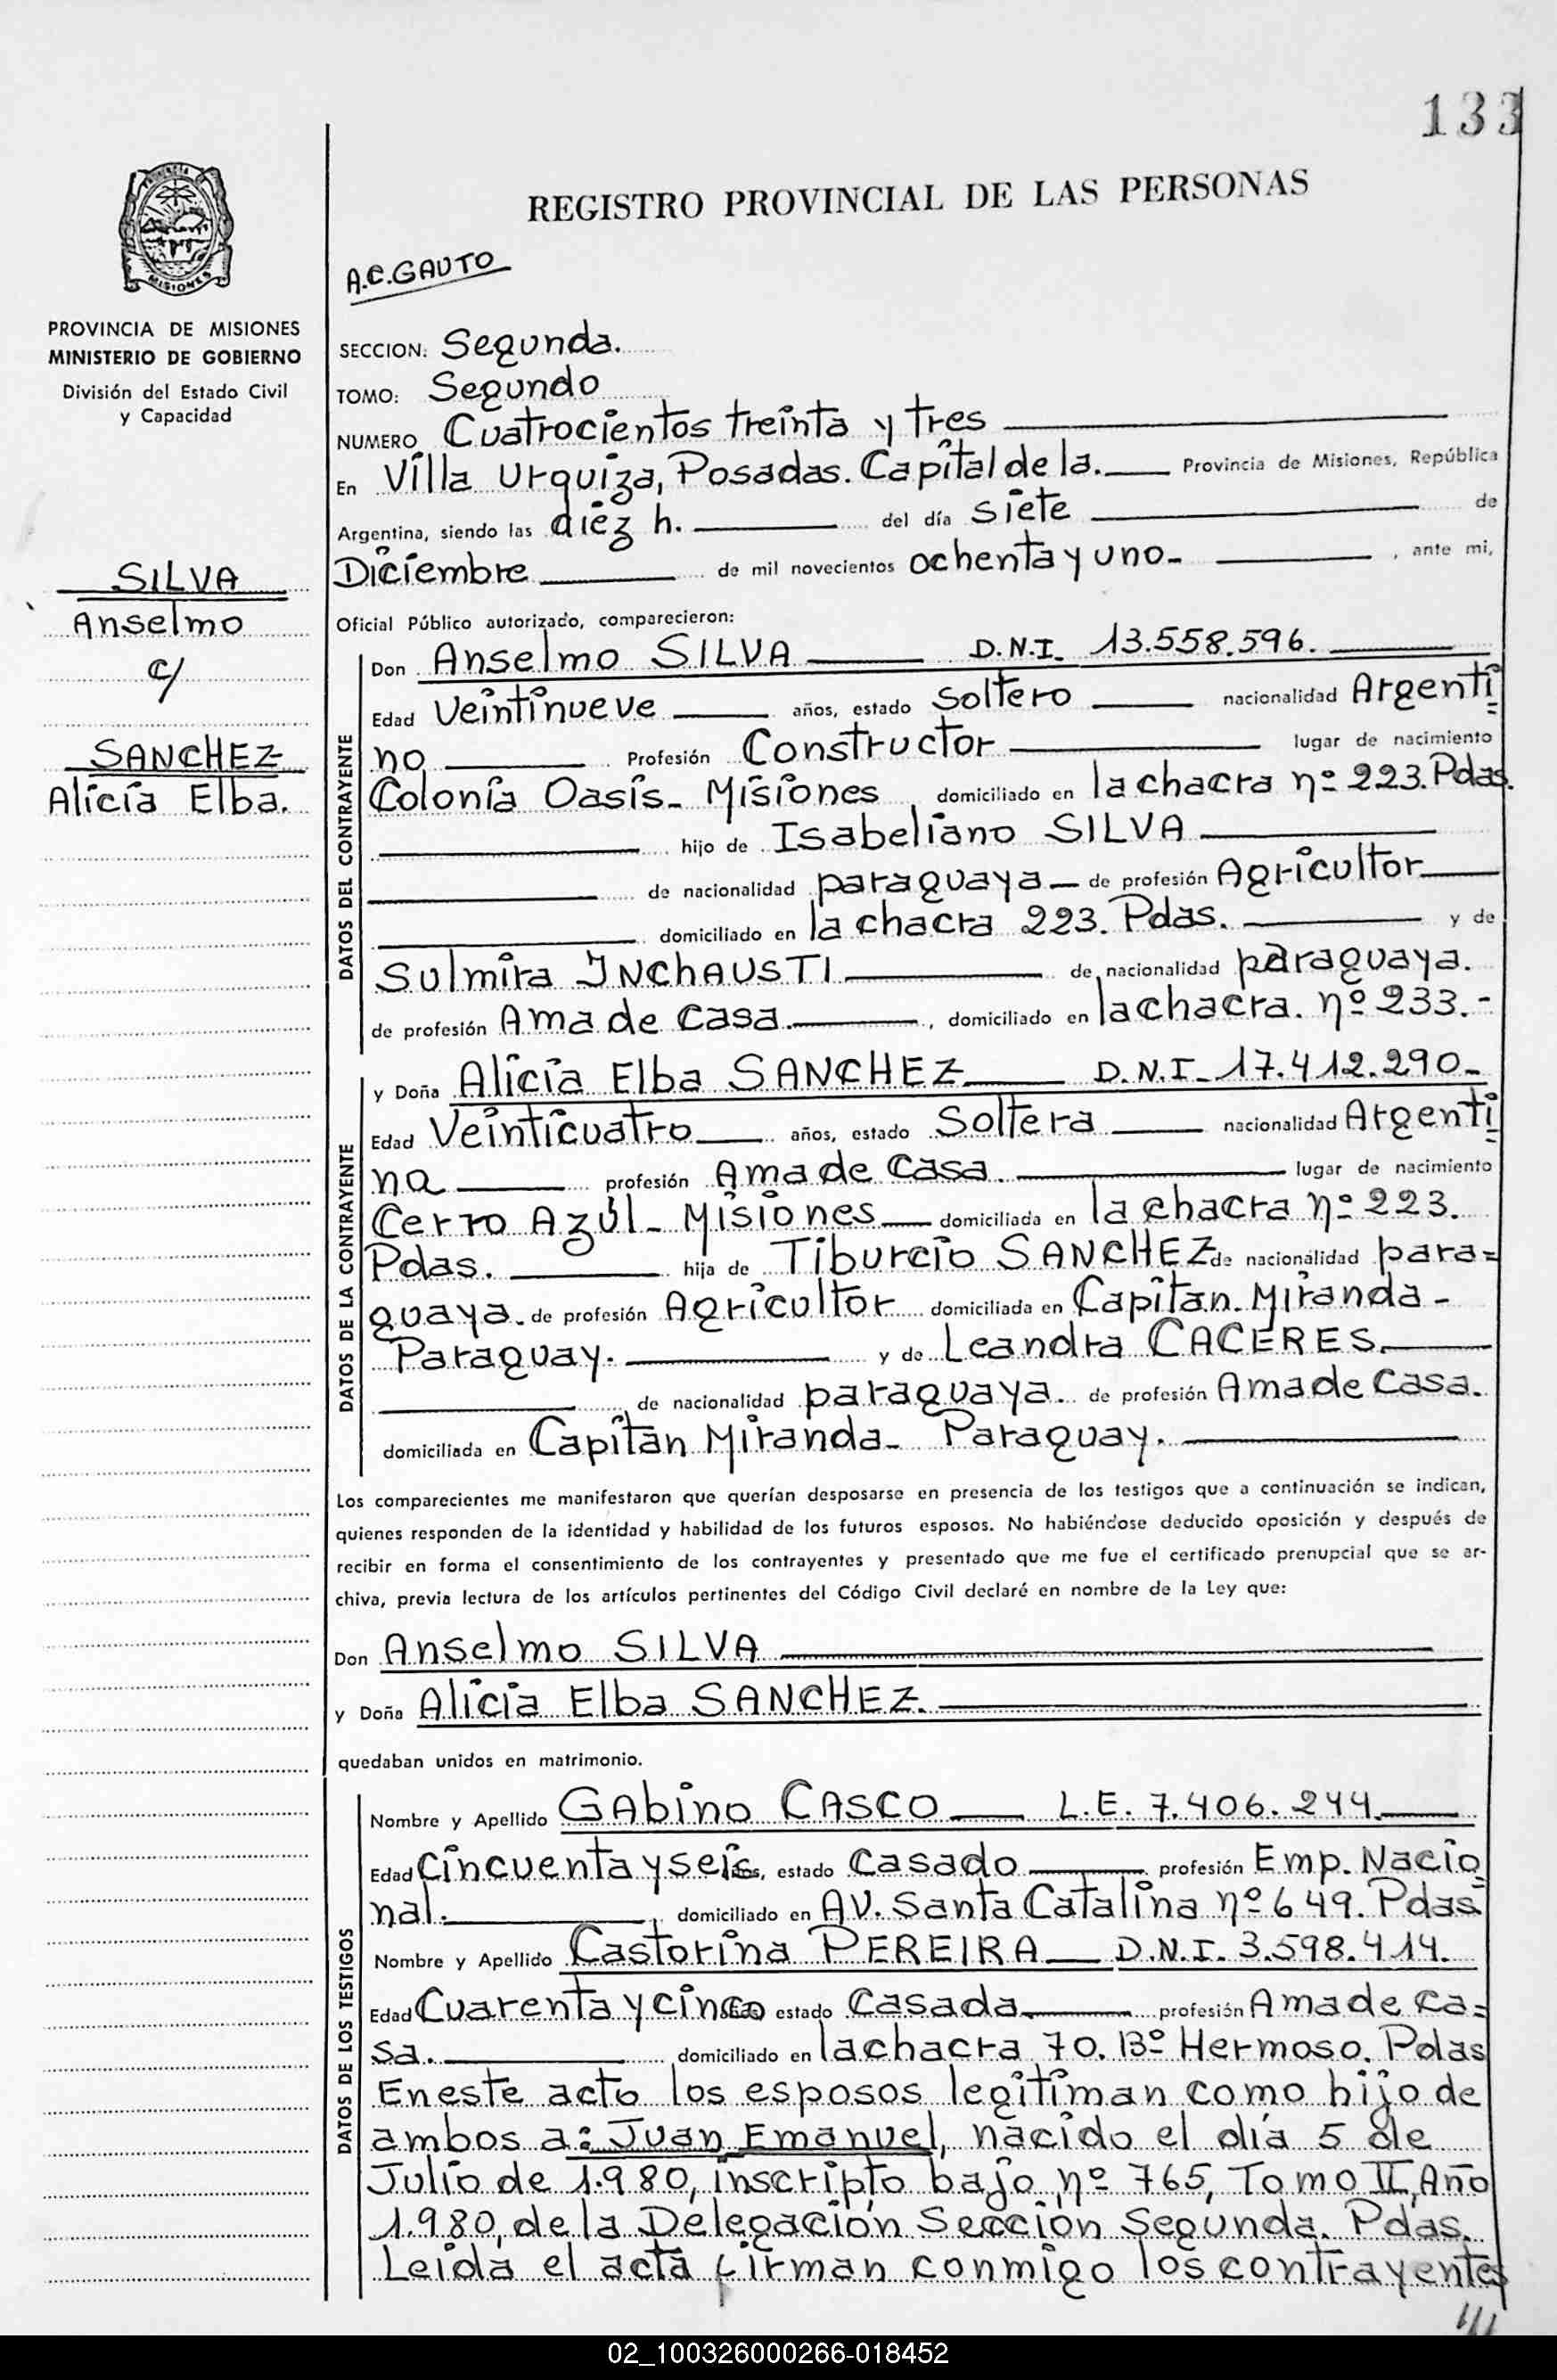 133
REGISTRO PROVINCIAL DE LAS PERSONAS
PROVINCIA
MISIONES
PROVINCIA DE MISIONES
MINISTERIO DE GOBIERNO
División del Estado Civil
y Capacidad
A.C.GAUTO
SECCION: Segunda.
TOMO: Segundo
NUMERO Cuatrocientos treinta y tres
En Villa Urquiza, Posadas. Capital de la. Provincia de Misiones, República
Argentina, siendo las diez h. del día siete de
Diciembre de mil novecientos ochenta y uno- , ante mi,
Oficial Público autorizado, comparecieron:
SILVA
Anselmo
c/
SANCHEZ
Alicia Elba.
DATOS DEL CONTRAYENTE
Don Anselmo SILVA D.N.I. 13.558.596.
Edad Veintinueve años, estado Soltero nacionalidad Argenti=
no Profesión Constructor lugar de nacimiento
Colonia Oasis- Misiones, domiciliado en la chacra nº 223. Pdas.
hijo de Isabeliano SILVA
de nacionalidad paraguaya de profesión Agricultor
domiciliado en la chacra 223. Pdas. y de
Sulmira INChAUSTI de nacionalidad paraguaya.
de profesión Ama de Casa. , domiciliado en la chacra. nº 233.-
DATOS DE LA CONTRAYENTE
y Doña Alicia Elba SANCHEZ D.N.I- 17.412.290-
Edad Veinticuatro años, estado Soltera nacionalidad Argenti=
na profesión Ama de Casa. lugar de nacimiento
Cerro Azúl- Misiones domiciliada en la chacra nº 223.
Pdas. hija de Tiburcio SANCHEZ de nacionalidad para=
guaya. de profesión Agricultor domiciliada en Capitan. Miranda-
Paraguay. y de Leandra CACERES.
de nacionalidad paraguaya. de profesión Ama de Casa.
domiciliada en Capitan Miranda- Paraguay.
Los comparecientes me manifestaron que querían desposarse en presencia de los testigos que a continuación se indican,
quienes responden de la identidad y habilidad de los futuros esposos. No habiéndose deducido oposición y después de
recibir en forma el consentimiento de los contrayentes y presentado que me fue el certificado prenupcial que se ar-
chiva, previa lectura de los artículos pertinentes del Código Civil declaré en nombre de la Ley que:
Don Anselmo SILVA
y Doña Alicia Elba SANCHEZ.
quedaban unidos en matrimonio.
DATOS DE LOS TESTIGOS
Nombre y Apellido GAbino CASCO L.E. 7.406.244.
Edad Cincuenta y seis años, estado Casado profesión Emp. Nacio=
nal. , domiciliado en AV. Santa Catalina nº 649. Pdas.
Nombre y Apellido Castorina PEREIRA D.N.I. 3.598.414.
Edad Cuarenta y cinco estado Casada. profesión Ama de Ca=
sa. domiciliado en la chacra 70. Bº Hermoso. Pdas
En este acto los esposos legitiman como hijo de
ambos a: Juan Emanuel, nacido el día 5 de
Julio de 1.980, inscripto bajo nº 765, Tomo II, Año
1.980, de la Delegación Sección Segunda. Pdas.
Leida el acta firman conmigo los contrayentes
///
02_100326000266-018452